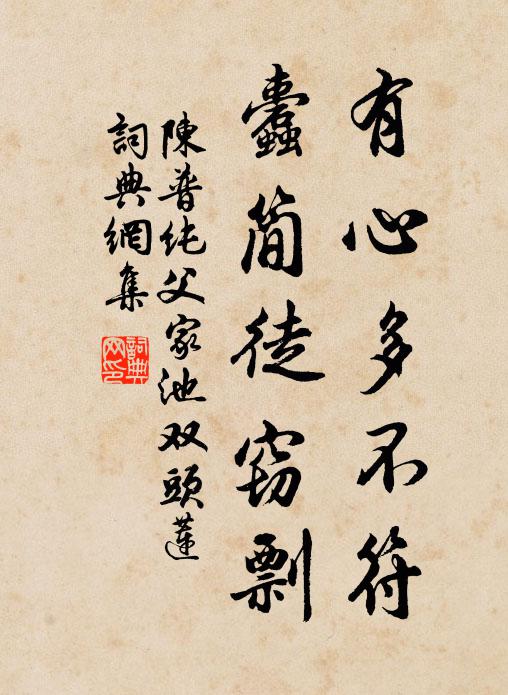 有心多不符
蠹簡徒窃剽
陳普純父家池双頭蓮
詞典網集
詞典网印